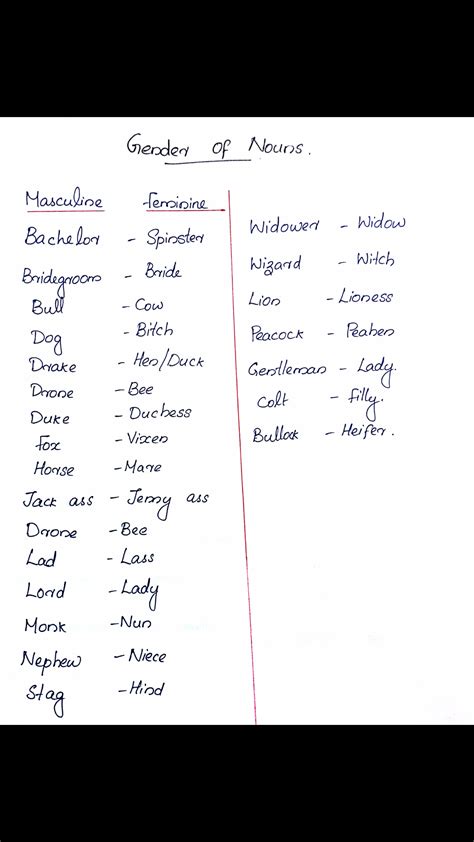 Gender of Nouns.
Masculine Feminine
Bachelor - Spinster
Bridegroom - Bride
Bull - Cow
Dog - Bitch
Drake - Hen/Duck
Drone - Bee
Duke - Duchess
Fox - Vixen
Horse - Mare
Jack ass - Jenny ass
Drone - Bee
Lad - Lass
Lord - Lady
Monk - Nun
Nephew - Niece
Stag - Hind
Widower - Widow
Wizard - Witch
Lion - Lioness
Peacock - Peahen
Gentleman - Lady.
Colt - Filly.
Bullock - Heifer.